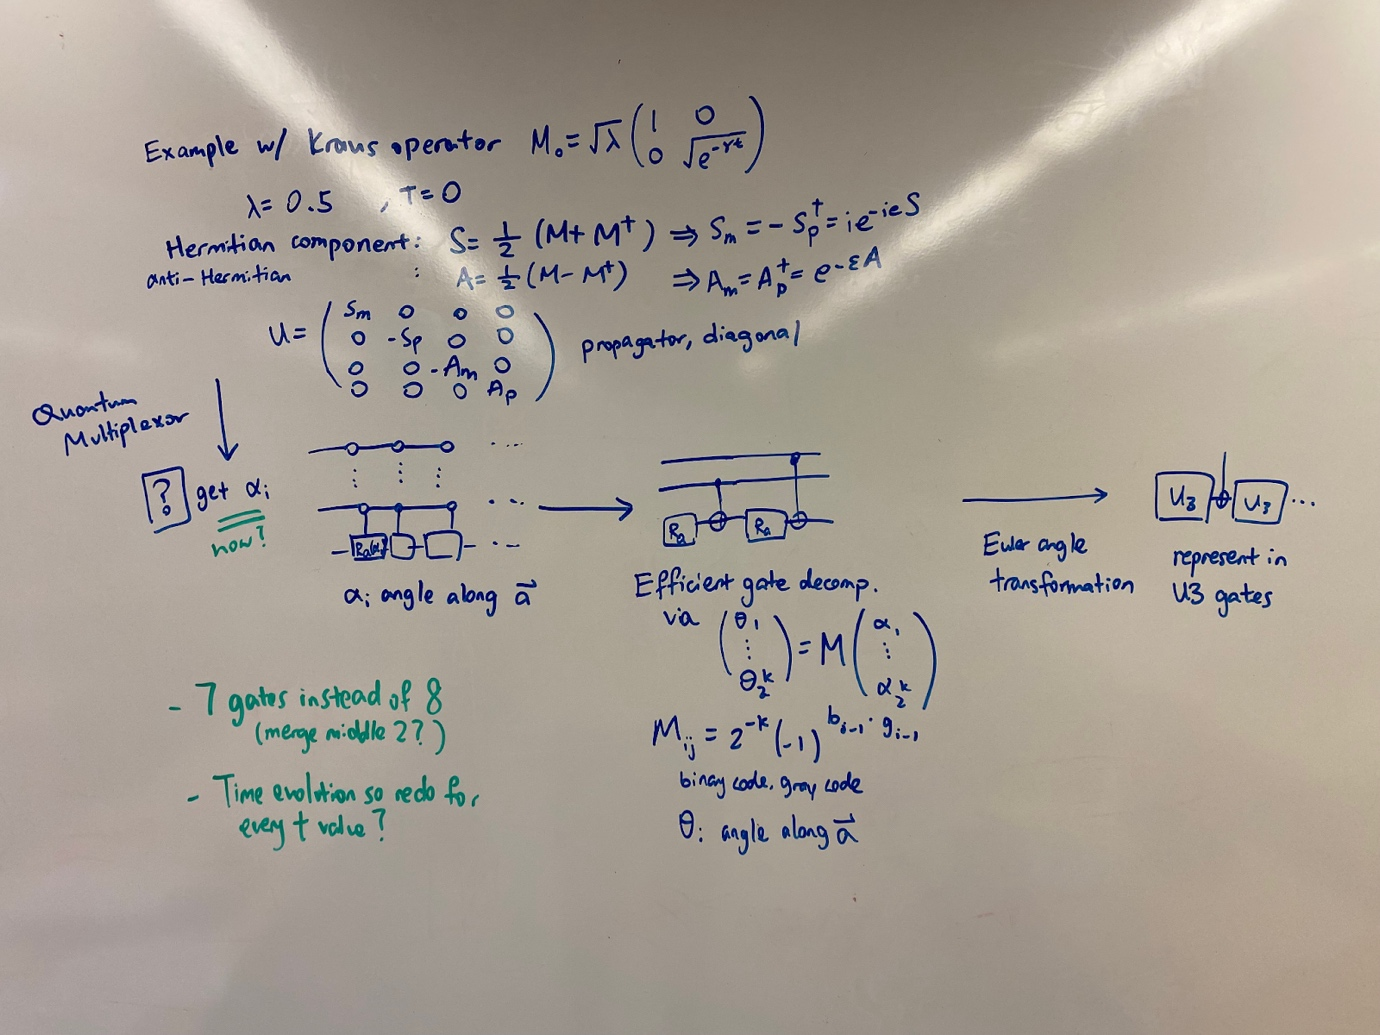 Example w/ Kraus operator M₀ = √λ ( 1 0 ; 0 √e^-γt )
λ = 0.5 , T = 0
Hermitian component : S = 1/2 (M + M†) ⇒ Sm = - Sp† = ie^-iεS
anti-Hermitian : A = 1/2 (M - M†) ⇒ Am = Ap† = e^-εA
U = ( Sm 0 0 0
0 -Sp 0 0
0 0 -Am 0
0 0 0 Ap )
propagator, diagonal
Quantum
Multiplexor
? get αi
how?
Ra(αi)
αi angle along a⃗
Ra Ra
Efficient gate decomp.
via ( θ₁ ⋮ θ₂ᵏ ) = M ( α₁ ⋮ α₂ᵏ )
Mij = 2^-k (-1)^bi-1 · gi-1
binary code, gray code
θ: angle along a⃗
Euler angle
transformation
U3 U3 ...
represent in
U3 gates
- 7 gates instead of 8
(merge middle 2?)
- Time evolution so redo for
every t value?